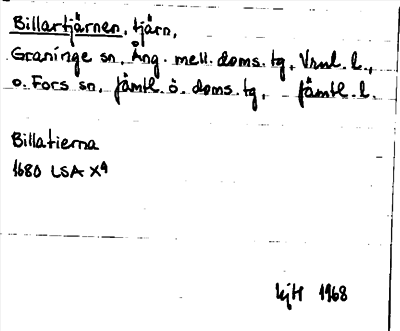 Billartjärnen, tjärn,
Graninge sn, Ång. mell. doms. tg, Vrnl. l.,
o. Fors sn, Jämtl. ö. doms. tg, Jämtl. l.
Billatierna
1680 LSA X4
1968